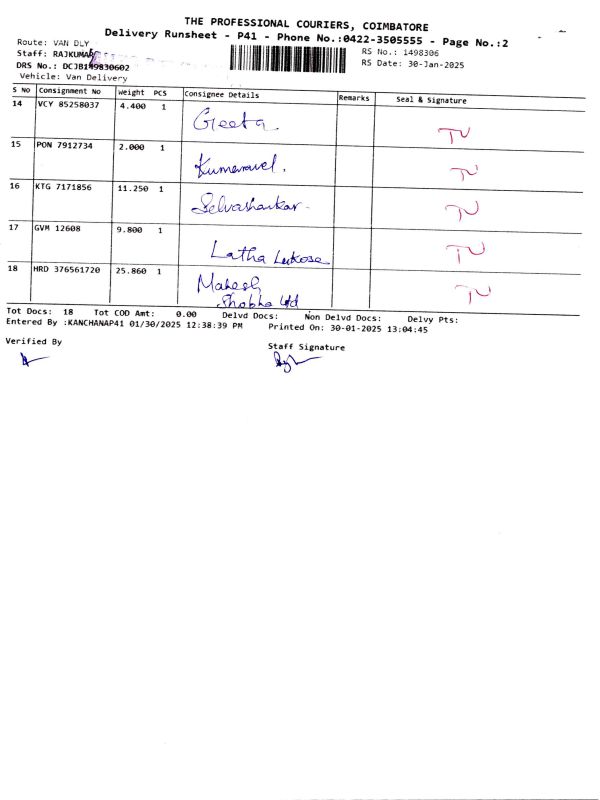 THE PROFESSIONAL COURIERS, COIMBATORE
Delivery Runsheet - P41 - Phone No.:0422-3505555 - Page No.:2
Route: VAN DLY
RS No.: 1498306
Staff: RAJKUMAR
RS Date: 30-Jan-2025
DRS No.: DCJB149830602
Vehicle: Van Delivery
S No Consignment No Weight PCS Consignee Details Remarks Seal & Signature
14 VCY 85258037 4.400 1 Geeta
15 PON 7912734 2.000 1 Kumaravel.
16 KTG 7171856 11.250 1 Selvashankar
17 GVM 12608 9.800 1 Latha Lukose
18 HRD 376561720 25.860 1 Mahesh
Shobha Ltd
Tot Docs: 18 Tot COD Amt: 0.00 Delvd Docs: Non Delvd Docs: Delvy Pts:
Entered By :KANCHANAP41 01/30/2025 12:38:39 PM Printed On: 30-01-2025 13:04:45
Verified By
Staff Signature